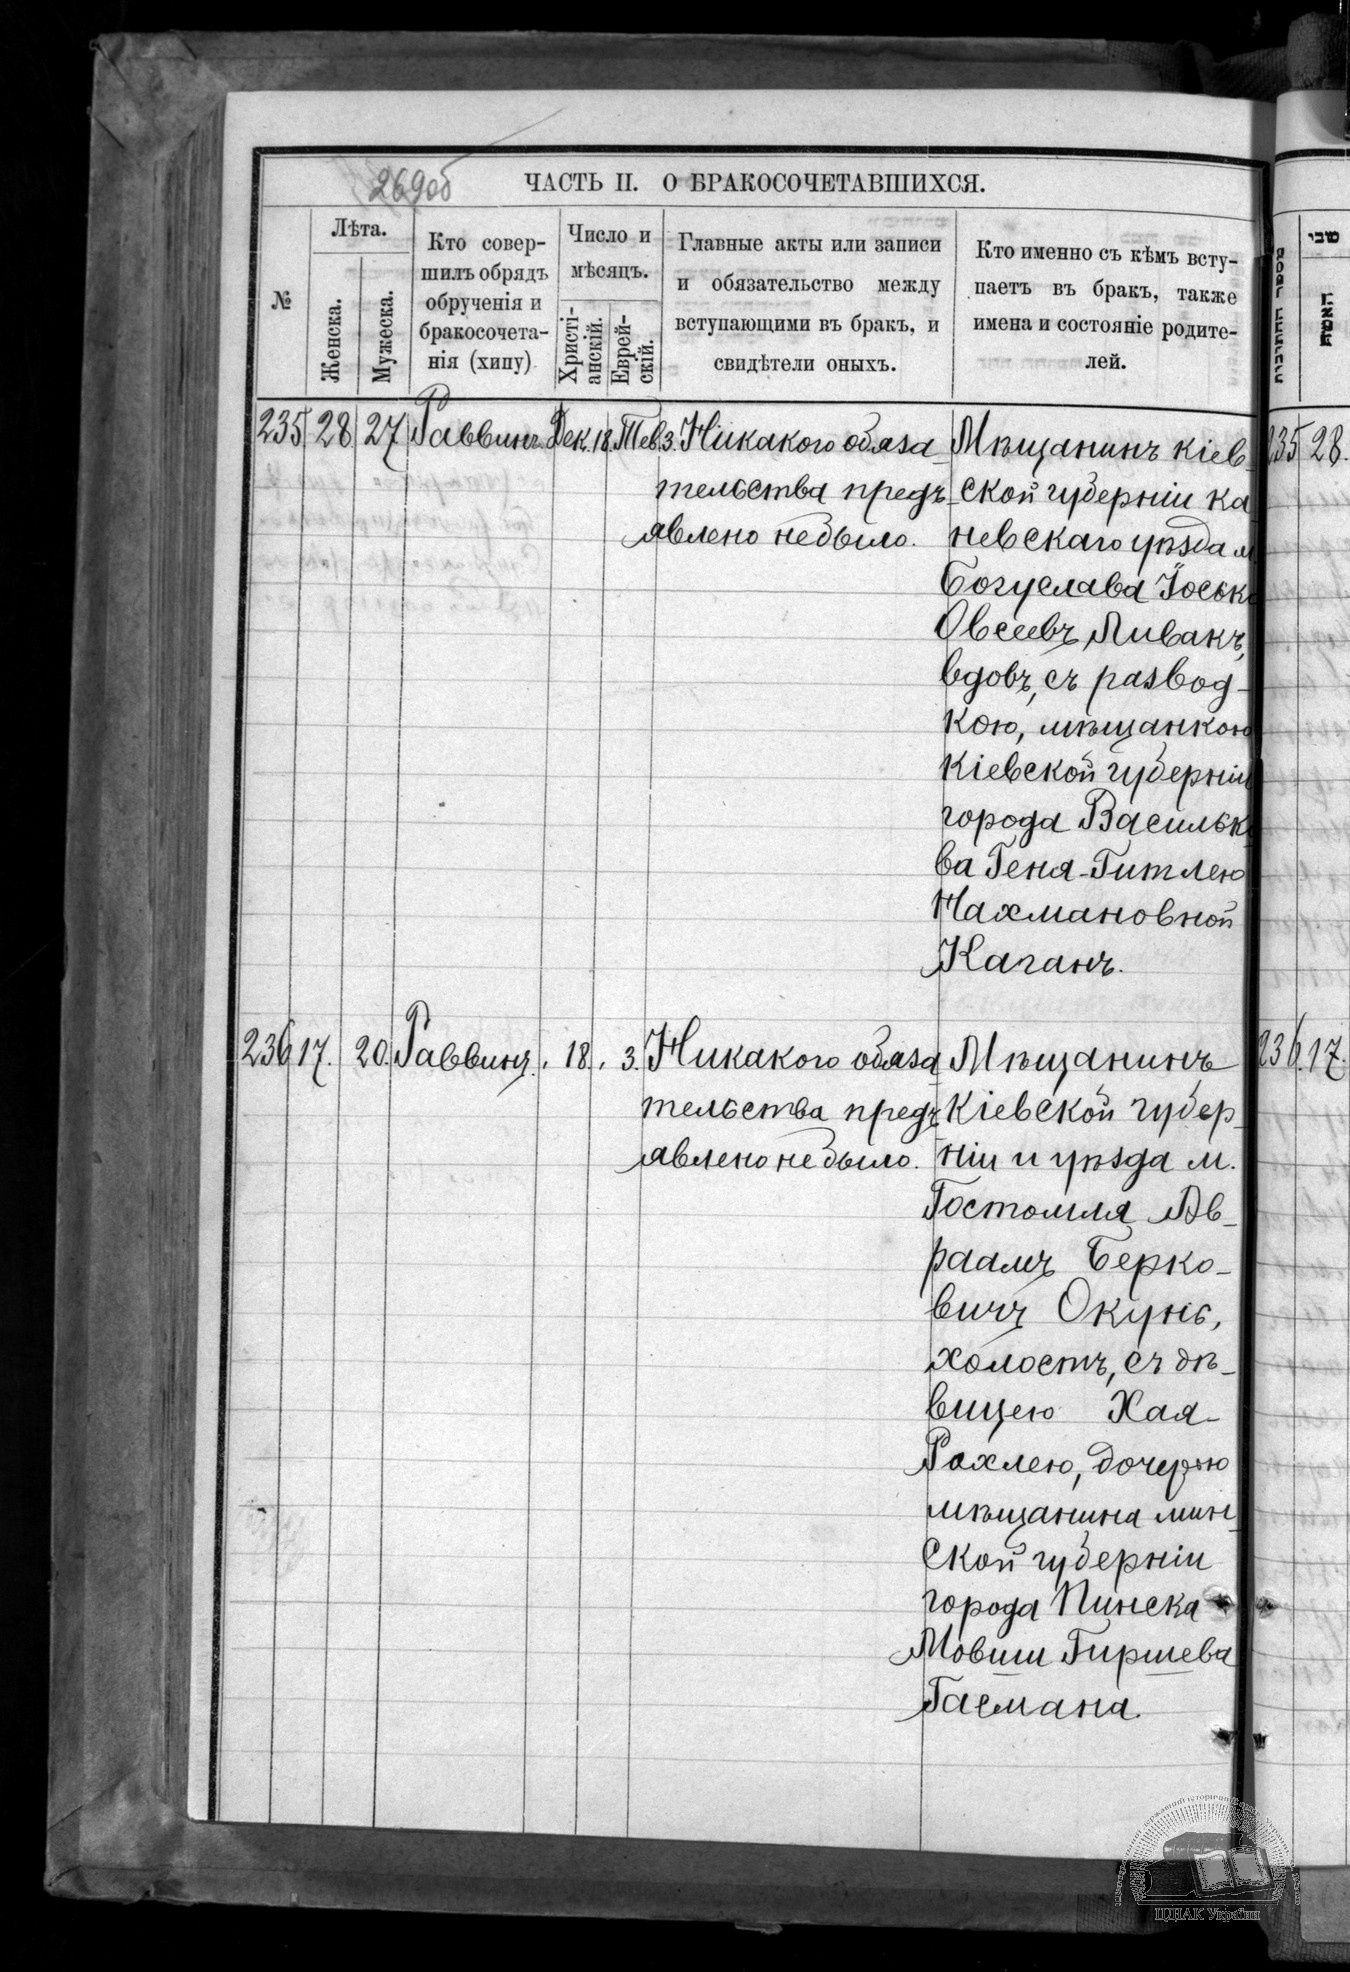 269об
ЧАСТЬ II. О БРАКОСОЧЕТАВШИХСЯ.
№
Лѣта.
Женска.
Мужеска.
Кто совер-
шилъ обрядъ
обрученія и
бракосочета-
нія (хипу)
Число и
мѣсяцъ.
Христі-
анскій.
Еврей-
скій.
Главные акты или записи
и обязательство между
вступающими въ бракъ, и
свидѣтели оныхъ.
Кто именно съ кѣмъ всту-
паетъ въ бракъ, также
имена и состояніе родите-
лей.
235. 28. 27. Раввинъ. Дек. 18. Тев. 3.
Никакого обяза-
тельства предъ-
явлено не было.
Мѣщанинъ кіев-
ской губерніи ка-
невскаго уѣзда м.
Богуслава Іосько
Овсеевъ Ливакъ,
вдовъ, съ развод-
кою, мѣщанкою
кіевской губерніи
города Василько-
ва Геня-Гитлею
Нахмановной
Каганъ.
236. 17. 20. Раввинъ. 18. 3.
Никакого обяза-
тельства предъ-
явлено не было.
Мѣщанинъ
Кіевской губер-
ніи и уѣзда м.
Гостомля Ав-
раамъ Берко-
вичъ Окунь,
холостъ, съ дѣ-
вицею Хая-
Рахлею, дочерью
мѣщанина мин-
ской губерніи
города Пинска
Мовши Гиршева
Гасмана.
שבי
235 28.
236. 17.
ЦДІАК України